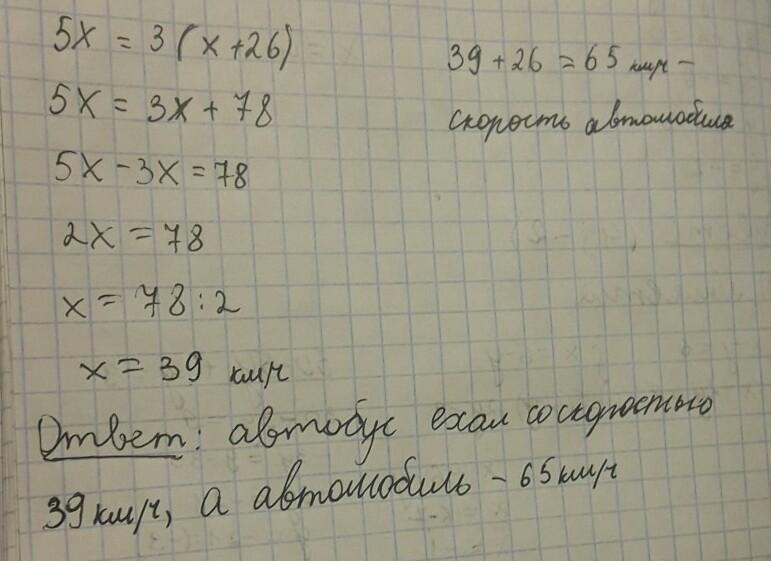 5x = 3(x+26)
5x = 3x + 78
5x - 3x = 78
2x = 78
x = 78 : 2
x = 39 км/ч
39 + 26 = 65 км/ч -
скорость автомобиля
Ответ: автобус ехал со скоростью
39 км/ч, а автомобиль - 65 км/ч